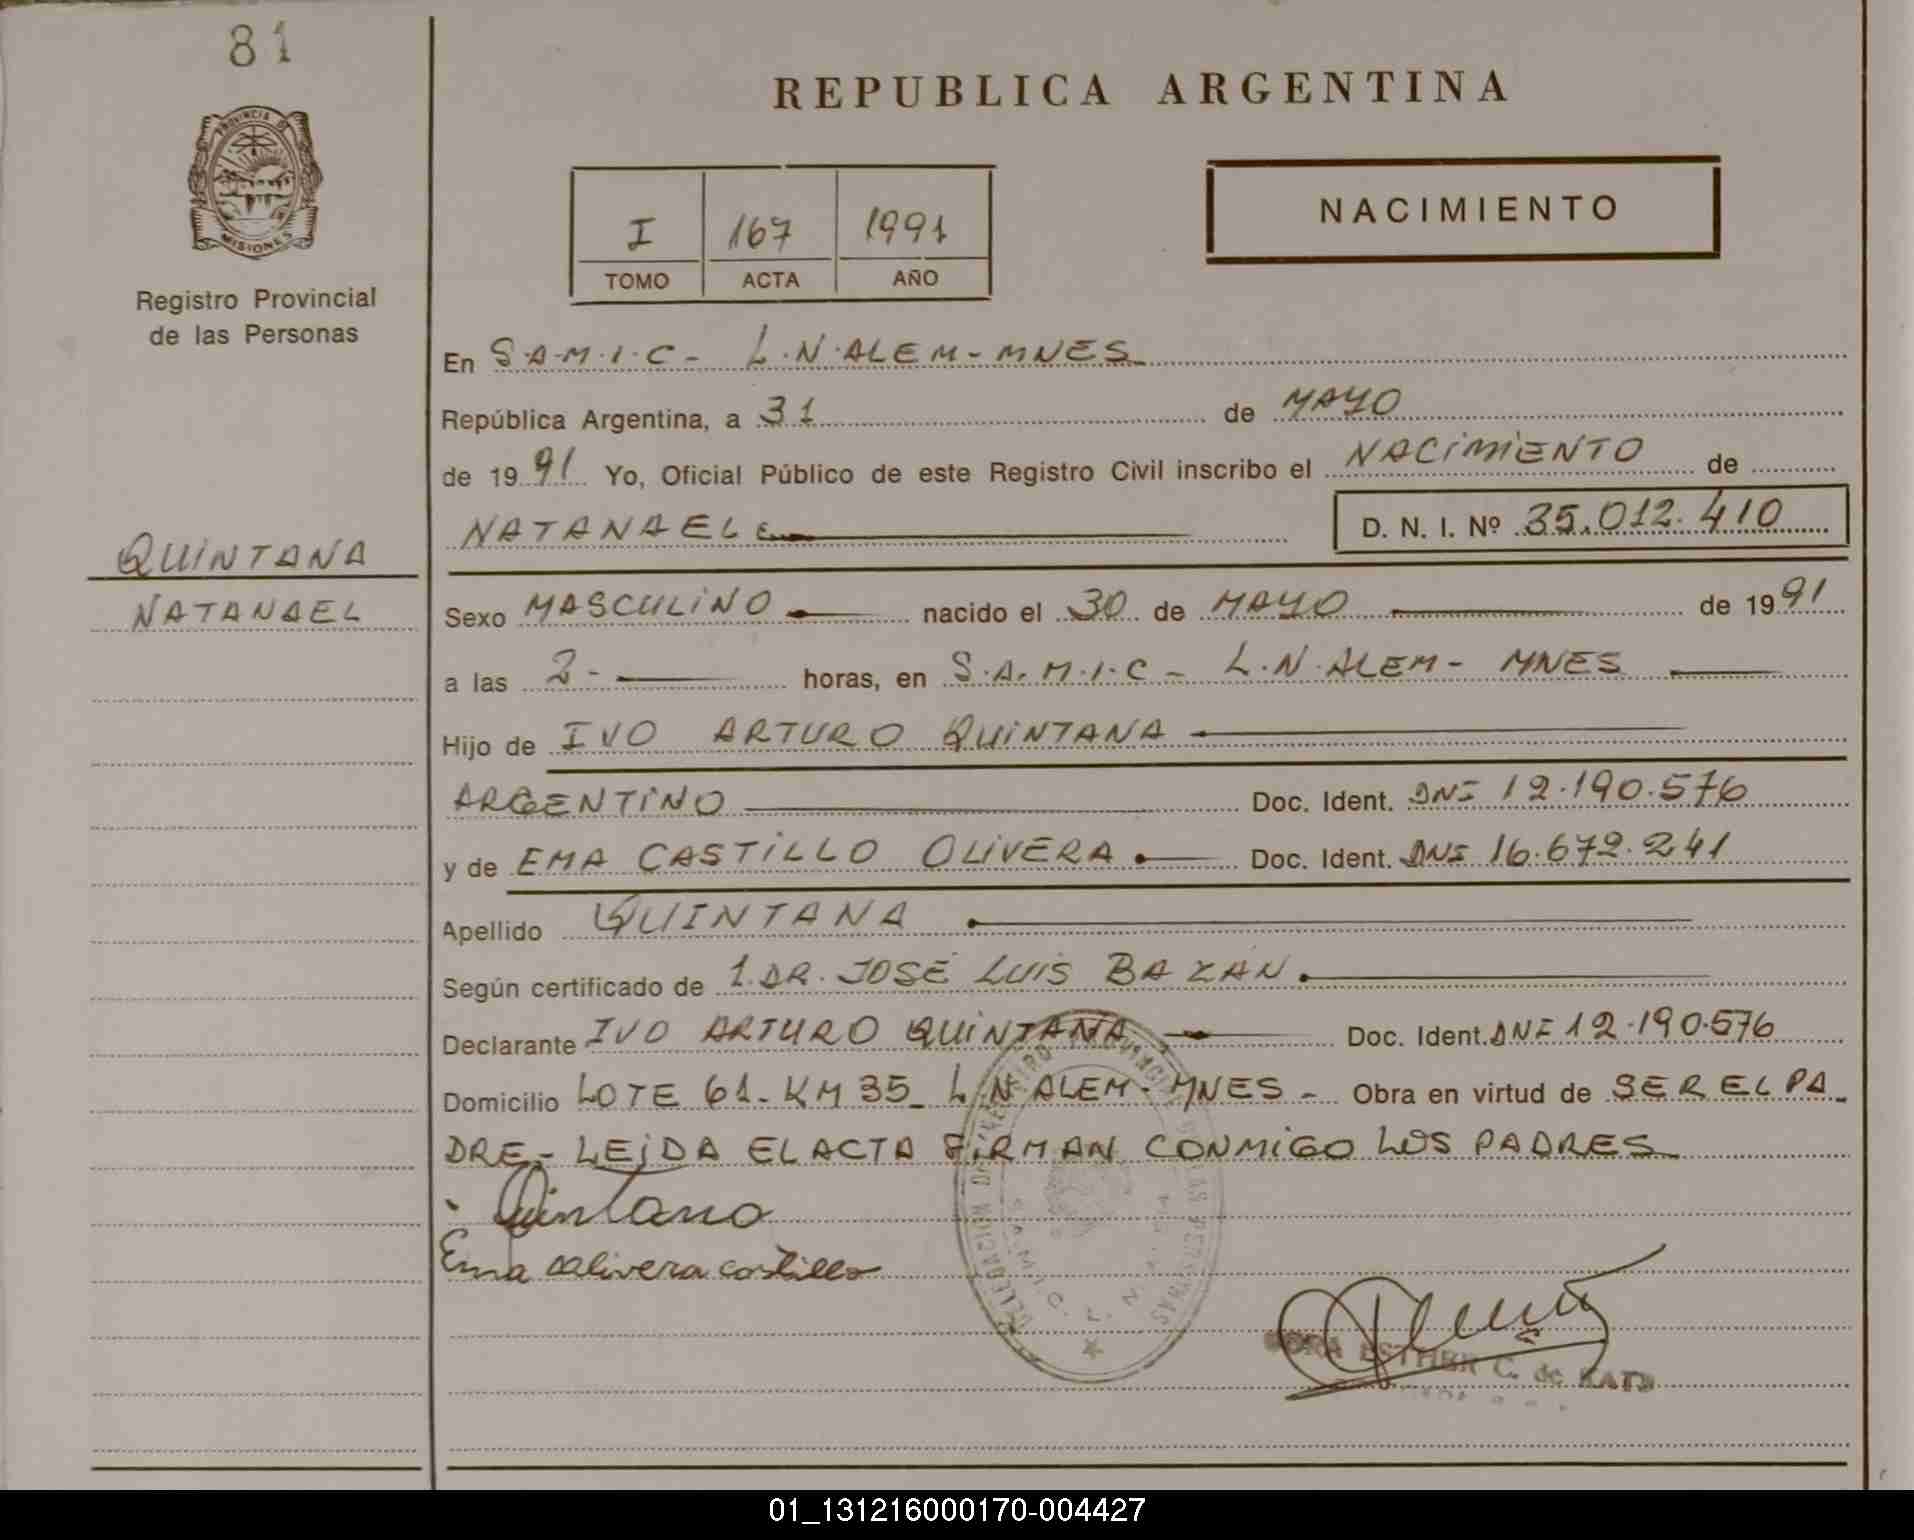 81
PROVINCIA DE
MISIONES
Registro Provincial
de las Personas
QUINTANA
NATANAEL
REPUBLICA ARGENTINA
I 167 1991
TOMO ACTA AÑO
NACIMIENTO
En S.A.M.I.C- L.N.ALEM-MNES
República Argentina, a 31 de MAYO
de 1991 Yo, Oficial Público de este Registro Civil inscribo el NACIMIENTO de
NATANAEL D. N. I. Nº 35.012.410
Sexo MASCULINO nacido el 30 de MAYO de 1991
a las 2- horas, en S.A.M.I.C- L.N.ALEM- MNES
Hijo de IVO ARTURO QUINTANA
ARGENTINO Doc. Ident. DNI 12.190.576
y de EMA CASTILLO OLIVERA Doc. Ident. DNI 16.672.241
Apellido QUINTANA
Según certificado de 1.DR. JOSÉ LUIS BAZAN
Declarante IVO ARTURO QUINTANA Doc. Ident. DNI 12.190.576
Domicilio LOTE 61-KM 35_ L.N ALEM-MNES- Obra en virtud de SER EL PA-
DRE.- LEIDA EL ACTA FIRMAN CONMIGO LOS PADRES
Quintana
Ema Olivera castillo
ESTHER C. de
01_131216000170-004427